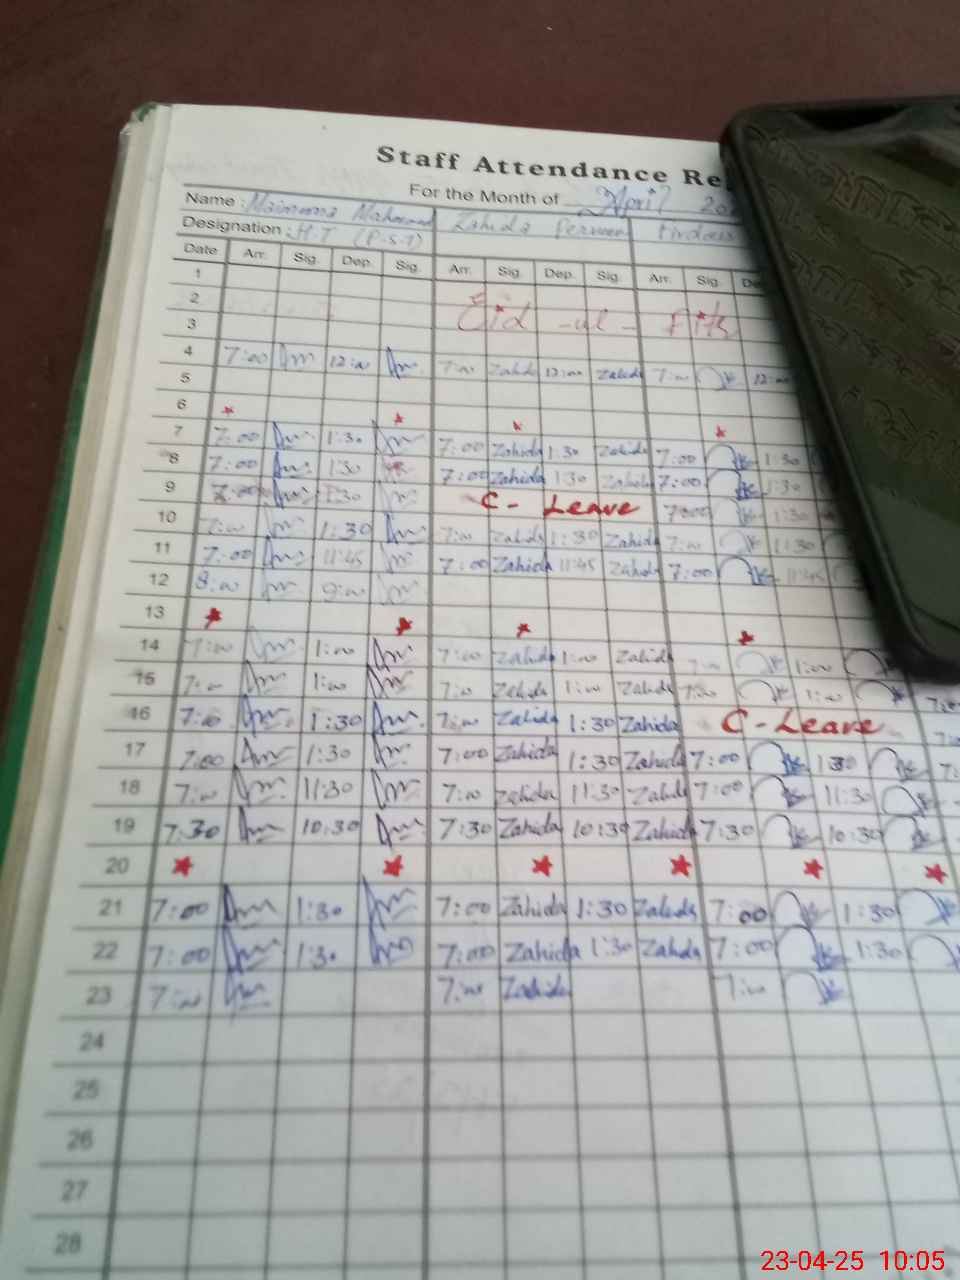 Staff Attendance Re
For the Month of April 20
Name : Maimoona Mahmood Zahida Perveen Firdous
Designation : H.T (P.S.T)
Date Arr. Sig. Dep. Sig. Arr. Sig. Dep. Sig. Arr. Sig. De
1
2 Eid -ul- Fitr
3
4 7:00 12:00 7:00 Zahida 12:00 Zahida 7:00 12:00
5
6
7 7:00 1:30 7:00 Zahida 1:30 Zahida 7:00 1:30
8 7:00 1:30 7:00 Zahida 1:30 Zahida 7:00 1:30
9 7:00 1:30 C- Leave 7:00 1:30
10 7:00 1:30 7:00 Zahida 1:30 Zahida 7:00 1:30
11 7:00 11:45 7:00 Zahida 11:45 Zahida 7:00 11:45
12 8:00 9:00
13
14 7:00 1:00 7:00 Zahida 1:00 Zahida 7:00 1:00
15 7:00 1:00 7:00 Zahida 1:00 Zahida 7:00 1:00
16 7:00 1:30 7:00 Zahida 1:30 Zahida C-Leave
17 7:00 1:30 7:00 Zahida 1:30 Zahida 7:00 1:30
18 7:00 11:30 7:00 Zahida 11:30 Zahida 7:00 11:30
19 7:30 10:30 7:30 Zahida 10:30 Zahida 7:30 10:30
20
21 7:00 1:30 7:00 Zahida 1:30 Zahida 7:00 1:30
22 7:00 1:30 7:00 Zahida 1:30 Zahida 7:00 1:30
23 7:00 7:00 Zahida 7:00
24
25
26
27
28
23-04-25 10:05